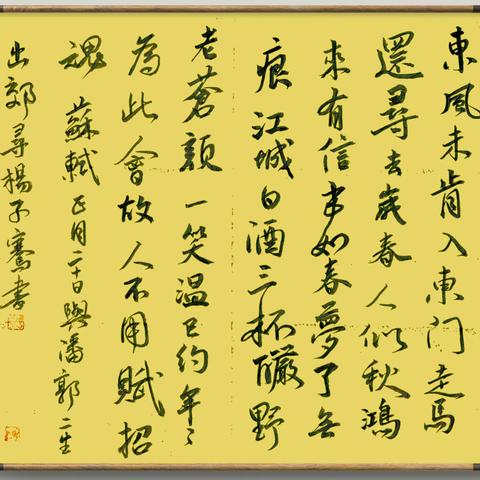 東風未肯入東門走馬
還尋去歲春人似秋鴻
來有信事如春夢了無
痕江城白酒三杯釅野
老蒼顏一笑溫已約年々
為此會故人不用賦招
魂 蘇軾正月二十日與潘郭二生
出郊尋楊子騫書